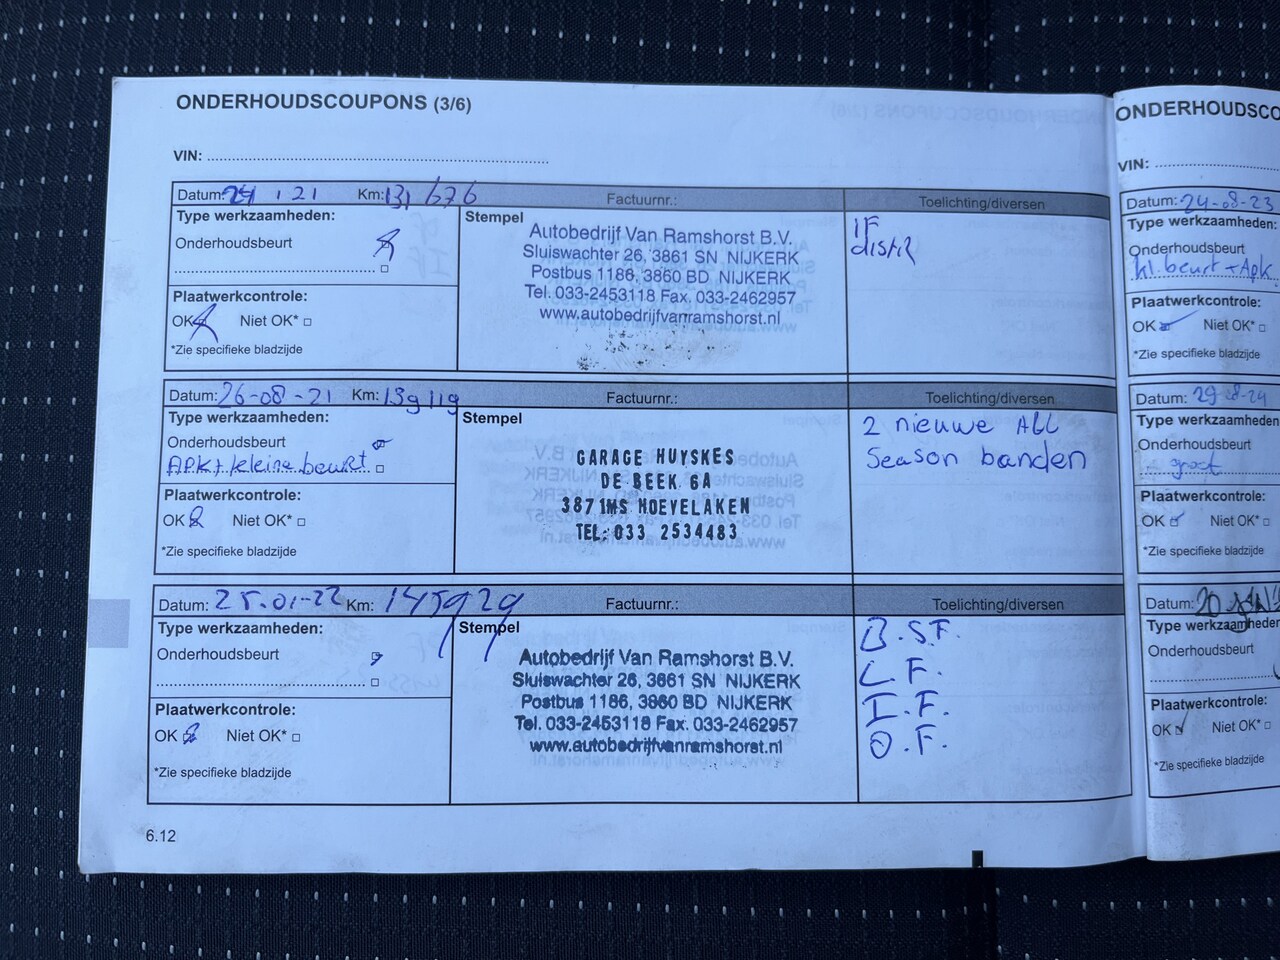 ONDERHOUDSCOUPONS (3/6)
VIN:
Datum: 21 Km: 131 676 Factuurnr.: Toelichting/diversen
Type werkzaamheden:
Onderhoudsbeurt
Plaatwerkcontrole:
OK Niet OK*
*Zie specifieke bladzijde
Stempel
Autobedrijf Van Ramshorst B.V.
Sluiswachter 26, 3861 SN NIJKERK
Postbus 1186, 3860 BD NIJKERK
Tel. 033-2453118 Fax. 033-2462957
www.autobedrijfvanramshorst.nl
IF
distR
Datum: 26-08-21 Km: 139119 Factuurnr.: Toelichting/diversen
Type werkzaamheden:
Onderhoudsbeurt
APK + kleine beurt
Plaatwerkcontrole:
OK Niet OK*
*Zie specifieke bladzijde
Stempel
GARAGE HUYSKES
DE BEEK 6A
3871MS HOEVELAKEN
TEL: 033 2534483
2 nieuwe All
Season banden
Datum: 25-01-22 Km: 145929 Factuurnr.: Toelichting/diversen
Type werkzaamheden:
Onderhoudsbeurt
Plaatwerkcontrole:
OK Niet OK*
*Zie specifieke bladzijde
Stempel
Autobedrijf Van Ramshorst B.V.
Sluiswachter 26, 3861 SN NIJKERK
Postbus 1186, 3860 BD NIJKERK
Tel. 033-2453118 Fax. 033-2462957
www.autobedrijfvanramshorst.nl
B.S.F.
L.F.
I.F.
O.F.
6.12
ONDERHOUDSCO
VIN:
Datum: 24-08-23
Type werkzaamheden:
Onderhoudsbeurt
kl. beurt + Apk.
Plaatwerkcontrole:
OK Niet OK*
*Zie specifieke bladzijde
Datum: 29-8-24
Type werkzaamheden:
Onderhoudsbeurt
groot
Plaatwerkcontrole:
OK Niet OK*
*Zie specifieke bladzijde
Datum: 20
Type werkzaamheden:
Onderhoudsbeurt
Plaatwerkcontrole:
OK Niet OK*
*Zie specifieke bladzijde